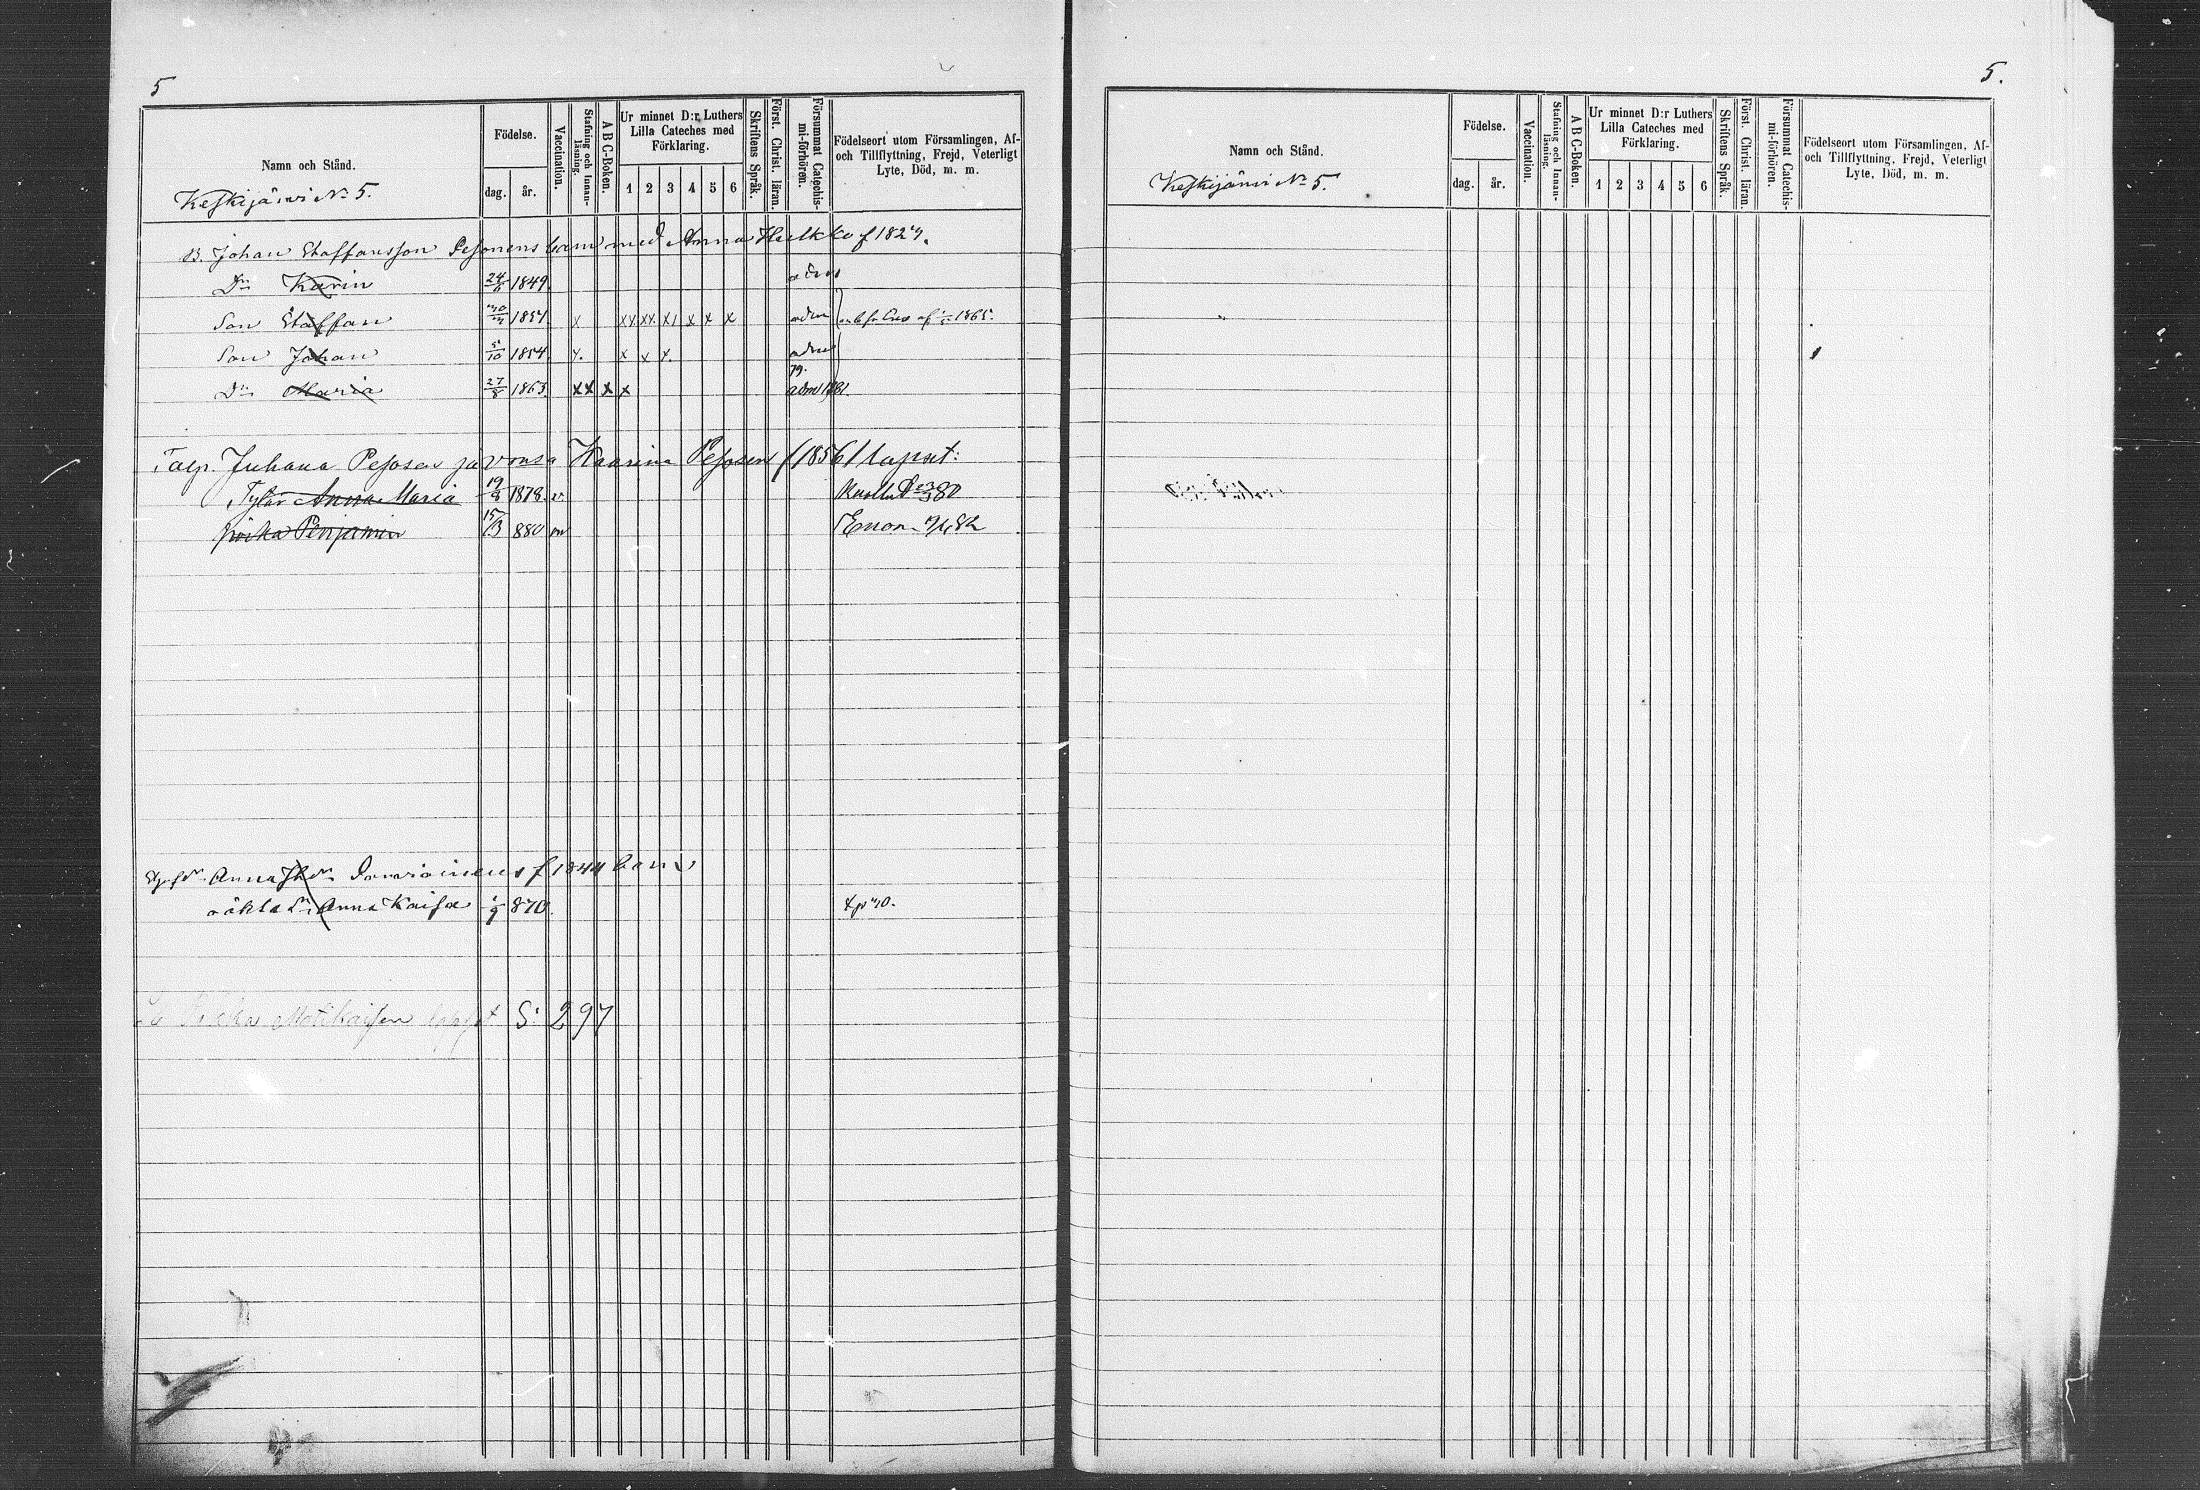 5
Namn och Stånd.
Födelse.
dag. år.
Vaccination.
Stafning och Innanläsning.
A B C-Boken.
Ur minnet D:r Luthers
Lilla Cateches med
Förklaring.
1 2 3 4 5 6
Skriftens Språk.
Först. Christ. läran.
Försummat Catechismi-förhören.
Födelseort utom Församlingen, Af-
och Tillflyttning, Frejd, Veterligt
Lyte, Död, m. m.
Keskijärvi No 5.
B. Johan Staffansson Pesonens barn med Anna Hulkko f 1827.
Dr Karin 24/6 1849.
Son Staffan 1851 x xx xx x x x x 1865.
Son Johan 5/10 1854 x. x x x.
Dr Maria 27/8 1863. xx x x adm 1881.
Talp. Juhana Pesosen ja vonsa Kaarina Pesosen f 1856 lapset:
Tytär Anna Maria 19/8 1878. Kuollut 80
Poika Penjamen 15/3 880 Enon 82
Anna Parviainens f 1844 barn
oäkta Dr Anna Kaisa 1/9 870.
Matikaisen lapset S: 297
5.
Namn och Stånd.
Födelse.
dag. år.
Vaccination.
Stafning och Innanläsning.
A B C-Boken.
Ur minnet D:r Luthers
Lilla Cateches med
Förklaring.
1 2 3 4 5 6
Skriftens Språk.
Först. Christ. läran.
Försummat Catechismi-förhören.
Födelseort utom Församlingen, Af-
och Tillflyttning, Frejd, Veterligt
Lyte, Död, m. m.
Keskijärvi No 5.